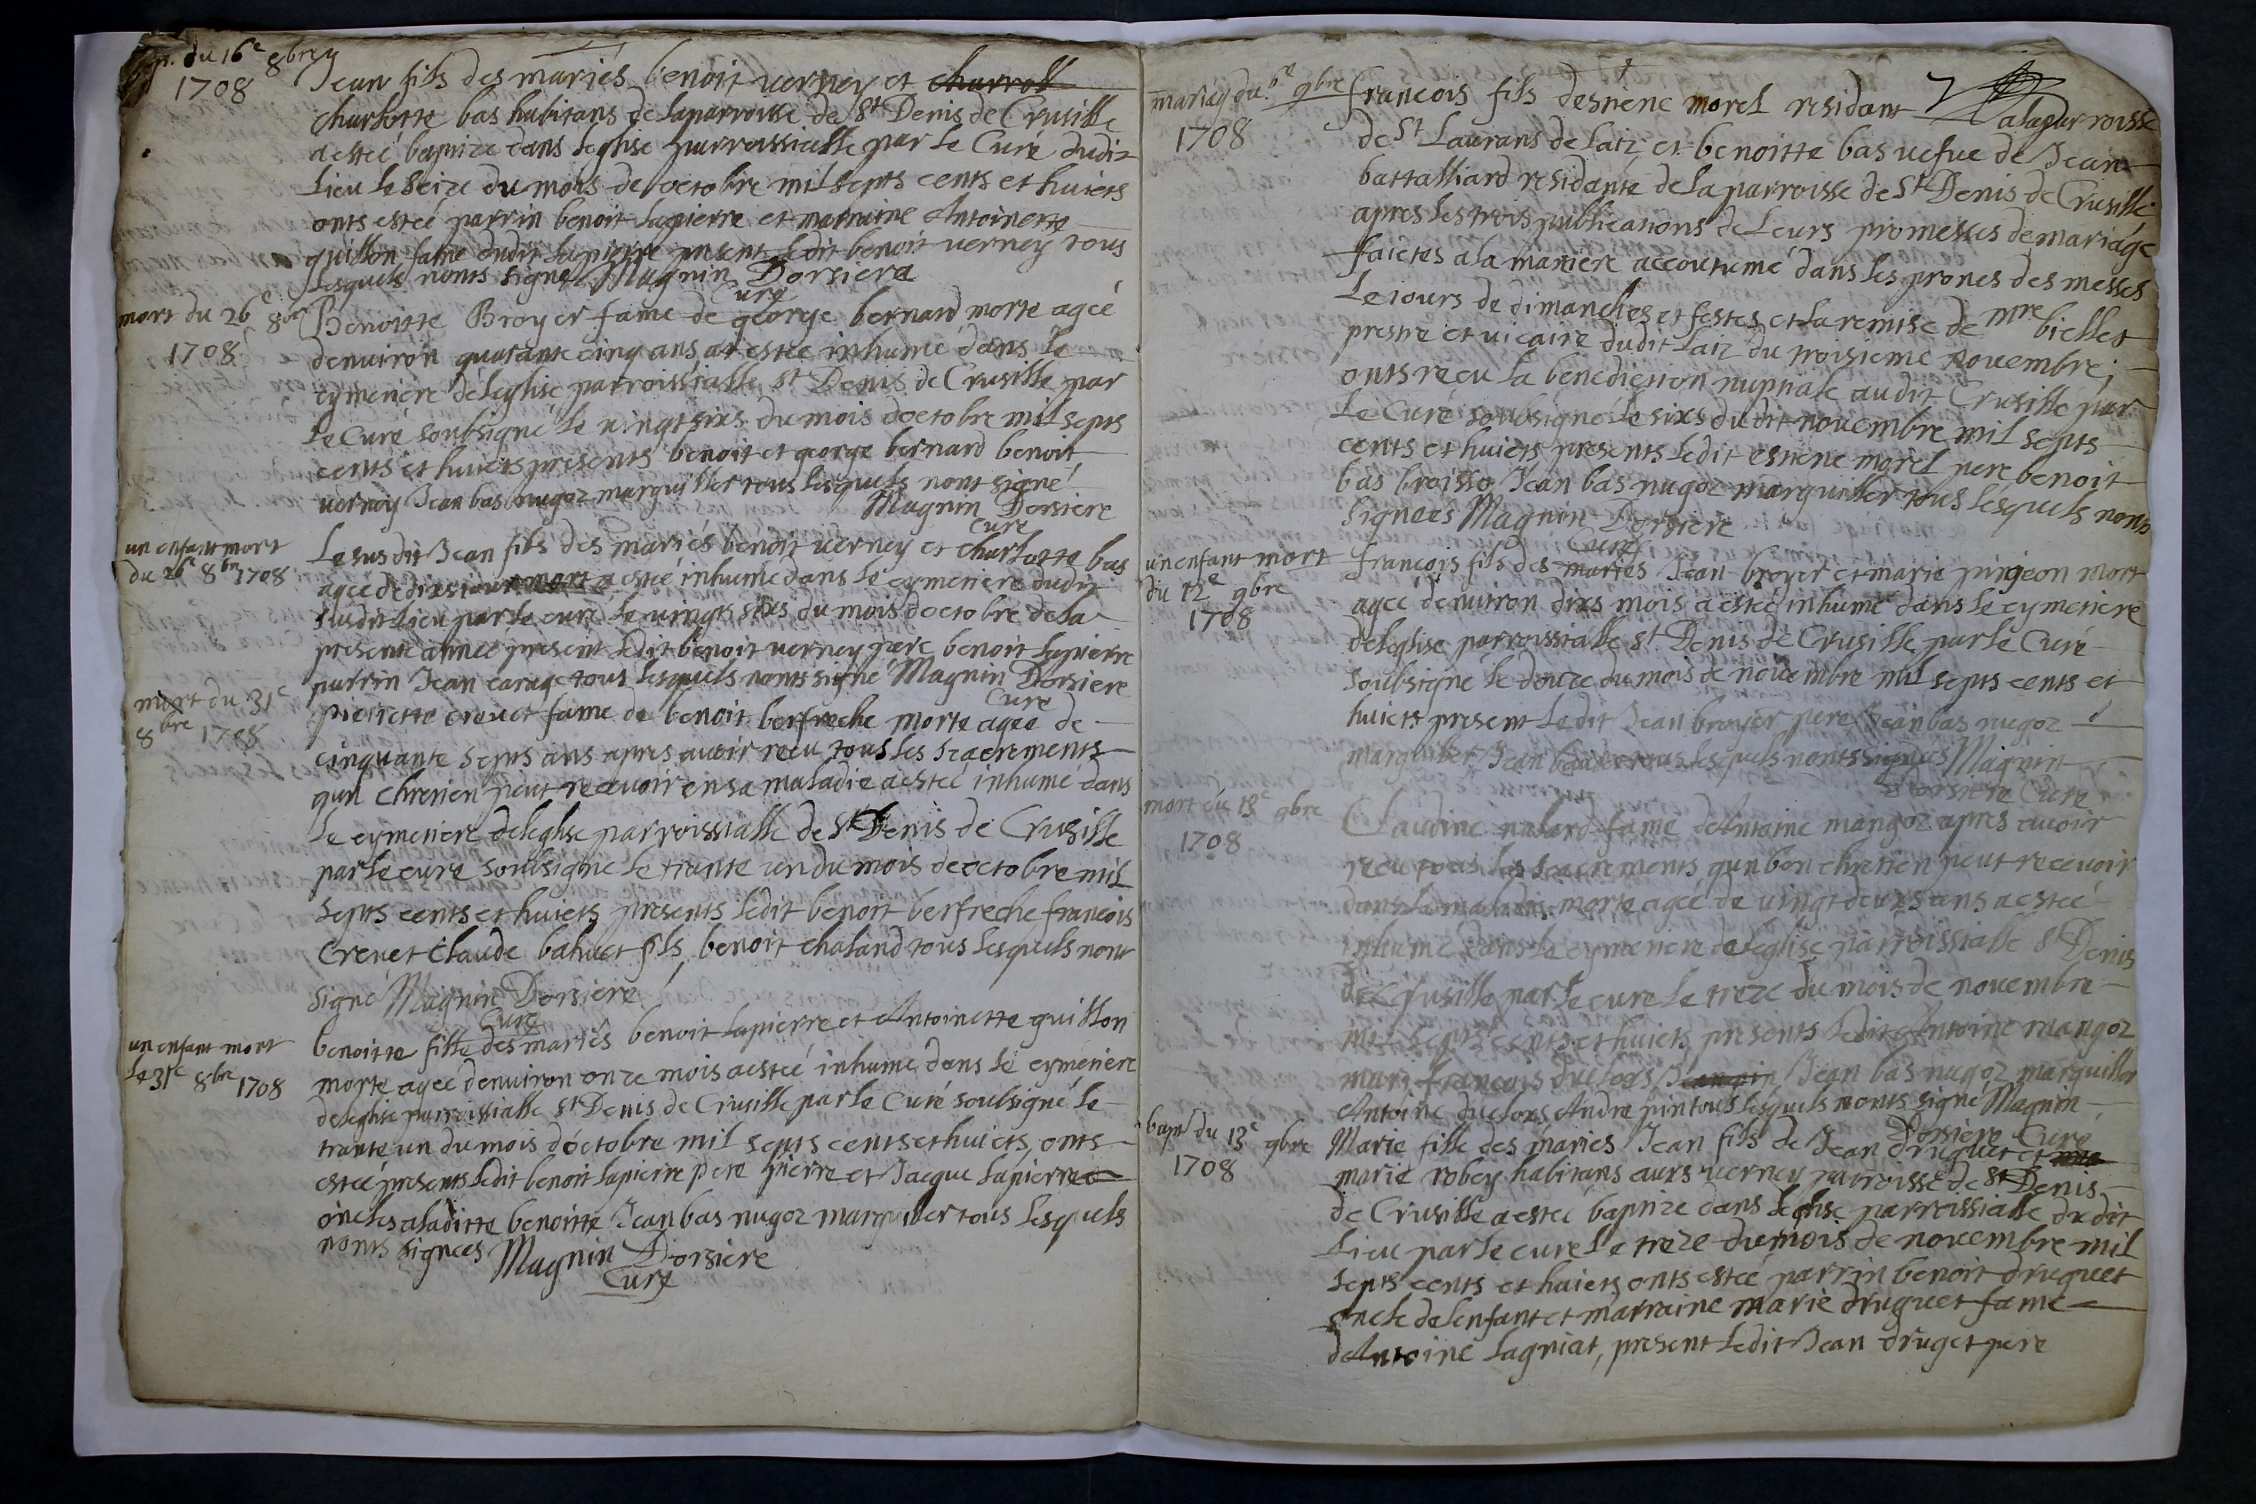 du 16e 8bre
1708
Jean fils des mariés benoit verney et charrott
charlotte bas habitans de laparroisse de St Denis de Crusille
aesteé baptizé dans leglise parroissialle par le Curé dudit
Lieu le Seize du mois de octobre mil septs cents et huicts
onts esteé parrin benoit lapierre et marraine Antoinette
guillon fame dudit lapierre present ledit benoit verney tous
lesquels nonts signé Magnin Dorsiere
Curé
mort du 26e 8bre
1708
Benoitte Broyer fame de george bernard morte ageé
denuiron quarante cinq ans at esteé inhumé dans le
cymetiere de leglise parroissialle St Denis de Crusille par
le Curé soubsigné le vingt sixs du mois doctobre mil septs
cents et huicts presents benoit et george bernard benoit
verney Jean bas nugoz marguiller tous lesquels nont signé
Magnin Dorsiere
Curé
un enfant mort
du 26e 8bre 1708
Le susdit Jean fils des mariés benoit verney et charlotte bas
ageé de dixs jours aesteé inhumé dans le cymetiere dudit
susdit lieu par le curé le vingts sixs du mois doctobre de la
presente anneé present ledit benoit verney pere benoit lapierre
parrin Jean carage tous lesquels nonts signé Magnin Dorsiere
Curé
mort du 31e
8bre 1708
pierrette crevet fame de benoit berfreche morte ageé de
cinquante septs ans apres avoir recu tous les sacrements
qun chretien peut recevoir en sa maladie aesteé inhumé dans
le cymetiere de leglise parroissialle de St Denis de Crusille
par le curé soubsigné le trante un du mois de octobre mil
septs cents et huicts presents ledit benoit berfreche francois
Crevet Claude bahuet fils, benoit chaland tous lesquels nont
signé Magnin Dorsiere
Curé
un enfant mort
le 31e 8bre 1708
benoitte fille des mariés benoit lapierre et Antoinette guillon
morte ageé denuiron onze mois aesteé inhumé dans le cymetiere
de leglise parroissialle St Denis de Crusille par le Curé soubsigné le
trante un du mois doctobre mil septs cents et huicts, onts
esteé presents ledit benoit lapierre pere pierre et Jacque lapierre
oncles aladitte benoitte Jean bas nugoz marguiller tous lesquels
nonts signeés Magnin Dorsiere
Curé
mariag du 6e 9bre
1708
francois fils destiene morel residant alaparroisse
de St Laurans de laiz et benoitte bas vefue de Jean
battalliard residante de la parroisse de St Denis de Crusille
apres les trois publications de leurs promesses de mariage
faictes a la maniere accoutumé dans les prones des messes
le iours de dimanches et festes et la remise de mre billet
prestre et vicaire dudit laiz du troisieme novembre,
onts recu la benediction nuptiale audit Crusille par
le Curé soubsigné le sixs dudit novembre mil septs
cents et huicts presents ledit estiene morel pere benoit
bas broisso Jean bas nugoz marguiller tous lesquels nonts
signeés Magnin Dorsiere
Curé
un enfant mort
du 12e 9bre
1708
francois fils des mariés Jean broyer et marie pingeon mort
ageé denuiron dixs mois aesteé inhumé dans le cymetiere
de leglise parroissialle St Denis de Crusille par le Curé
soubsigné le douze du mois de novembre mil septs cents et
huicts present ledit Jean broyer pere Jean bas nugoz
marguiller Jean tous lesquels nonts signés Magnin
Dorsiere Curé
mort du 13e 9bre
1708
Claudine nalard fame de Antoine mangoz apres avoir
recu tous les sacrements qun bon chretien peut recevoir
dans la maladie morte ageé de vingt deuxs ans aesteé
inhumé dans le cymetiere de leglise parroissialle St Denis
de Crusille par le curé le treze du mois de novembre
mil septs cents et huicts presents ledit Antoine mangoz
mari francois duclos Jean bas nugoz marguiller
Antoine duclos Andre pin tous lesquels nonts signé Magnin
Dorsiere Curé
bapt du 13e 9bre
1708
Marie fille des mariés Jean fils de Jean druguet et
marie robey habitans aux verney parroisse de St Denis
de Crusille aesteé baptizé dans leglise parroissialle dudit
lieu par le curé le treze du mois de novembre mil
septs cents et huicts onts esteé parrin benoit druguet
oncle de lenfant et marraine marie druguet fame
de Antoine lagniat, present ledit Jean druget pere